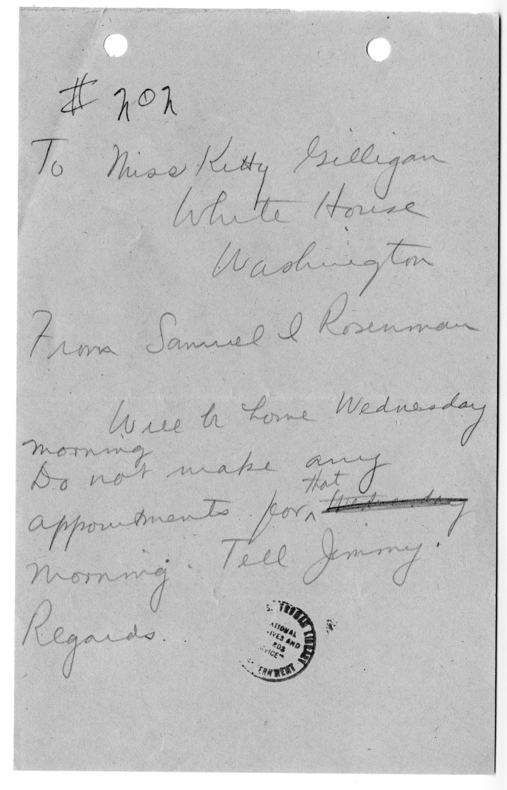 # 202
To Miss Kitty Gilligan
White House
Washington
From Samuel I Rosenman
Will be home Wednesday
morning
Do not make any
appointments for ^ that Wednesday
morning. Tell Jimmy.
Regards.
S. TRUMAN LIBRARY
ATIONAL
IVES AND
RDS
VICE
ERNMENT